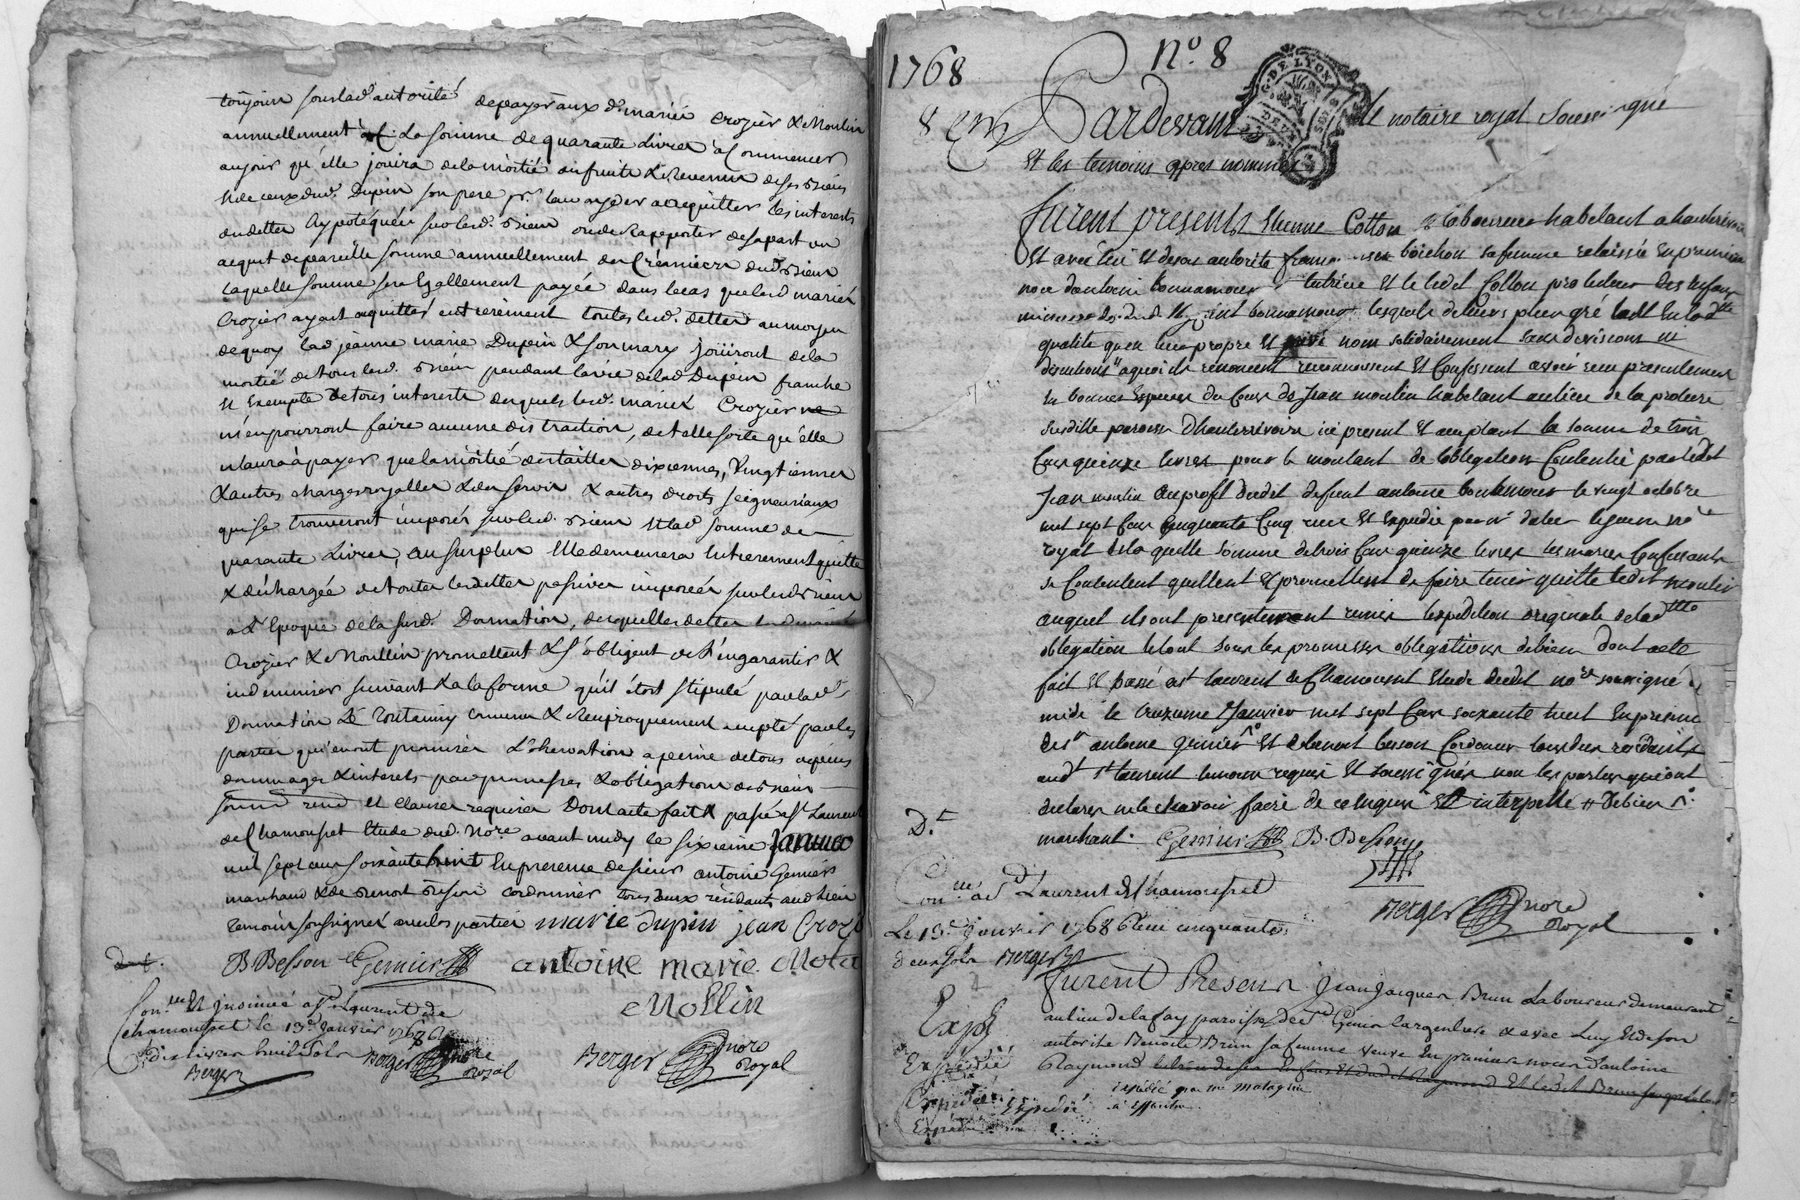 toujours sous lad. autorité de payer aux d. mariés Crozier & Moulin
annuellement la somme de quarante Livres à Commencer
au jour qu'elle jouira de la moitié des fruits & Revenus de ses Biens
& de ceux dud. Dupin son pere pr. luy ayder a acquitter les interets
des dettes hypotéquées sur lesd. Biens ou de Rapporter de sa part un
acquit de pareille somme annuellement des Créanciers dud. Biens
laquelle somme sera Egallement payée dans le cas que lesd. mariés
Crozier ayant aquittés entierement toutes lesd. dettes au moyen
de quoy lad. jeanne marie Dupin & son mary joüiront de la
moitié de tous lesd. Biens pendant la vie de lad. Dupin franche
et Exempte de tous interets desquels lesd. mariés Crozier ne
n'en pourront faire aucune distraction, de telle sorte qu'elle
n'aura à payer que la moitié des tailles dixiemes, Vingtiemes
& autres charges royalles & des servis & autres droits seigneuriaux
qui se trouveront imposés sur lesd. Biens et lad. somme de
quarante Livres, au surplus Elle demeurera Entierement quitte
& déchargée de toutes les dettes passives imposées sur lesd. Biens
a L'Epoque de la susd. Donnation, desquelles dettes lesd. mariés
Crozier & Moullin promettent & s'obligent de l'en garantir &
indemniser suivant & a la forme qu'il étoit stipulé par lad.
Donnation Le Contenu convenu & reciproquement accepté par les
parties qui en ont promis L'observation a peine de tous dépens
dommages & interets par promesses & obligation de Biens
soumis renon. et clauses requises Dont acte fait & passé a St. Laurent
de Chamousset Etude dud. Nore. avant midy le sixieme Janvier
mil sept cens soixante huit En presence de sieur antoine Geniers
marchand & de Benoit Besson cordonnier tous deux residants aud. Lieu
temoins soussignés avec les parties marie dupin jean Croz
B Besson Geniers antoine marie Mola
Mollin
Con. Et insinué a St. Laurent de
Chamousset le 13e. Janvier 1768
Dix livres huit sols Berger nore Royal
Berger
Berger nore
Royal
1768
No. 8
8 em
Pardevant Le notaire royal Soussigné
Et les temoins apres nommés
furent presents Etienne Cotton Laboureur habitant a hauterivoire
Et avec lui Et de son autorité boichon sa femme relaissée En premiere
noce d'antoine bonnamour tutrice Et le dit Cotton protuteur des Enfans
mineurs dud. bonnamour lesquels de leurs plein gré tant En lad.
qualité qu'en leur propre Et privé nom solidairement sans division ni
discution a quoi ils renoncent reconnoissent Et Confessent avoir recu presentement
En bonnes Especes du Cours de Jean moulin habitant au lieu de la
susditte paroisse d'hauterrivoire ici present Et acceptant la somme de trois
Cens quinze livres pour le montant de l'obligation Contentie par ledit
Jean moulin au profit dudit defunt antoine bonnamour le vingt octobre
mil sept Cens Cinquante Cinq recu Et Expedie par
royal de la quelle somme de trois Cens quinze livres les maries Confessants
se Contentent quittent Et promettent de faire tenir quitte ledit moulin
auquel ils ont presentement remis l'expedition originale de lad.
obligation le tout sous les promesses obligations de biens dont acte
fait Et passé a St. laurent de Chamousset Etude dudit nore. soussigné
midi le treizieme Janvier mil sept Cens soixante huit En presence
de sr. antoine geniers Et de benoit besson Cordonier tous deux residants
aud. St. laurent temoins requis Et soussignés non les parties qui ont
declarer ne le chavoir faire de ce Enquis Et interpellé
marchant. Geniers B. Besson
Con. a St. Laurent de Chamousset
Le 13e. Janvier 1768 Recu cinquante
deux sols Berger
Berger nore
Royal
furent Presens Jean Jacques Brun Laboureur demeurant
au lieu de la fay paroisse de St. Genis l'argentiere & avec Luy Et de son
autorité Benoite Brun sa femme veuve En premiere noces d'antoine
Raymond
Exp
Expédié
Expédié Expedié
Expedié